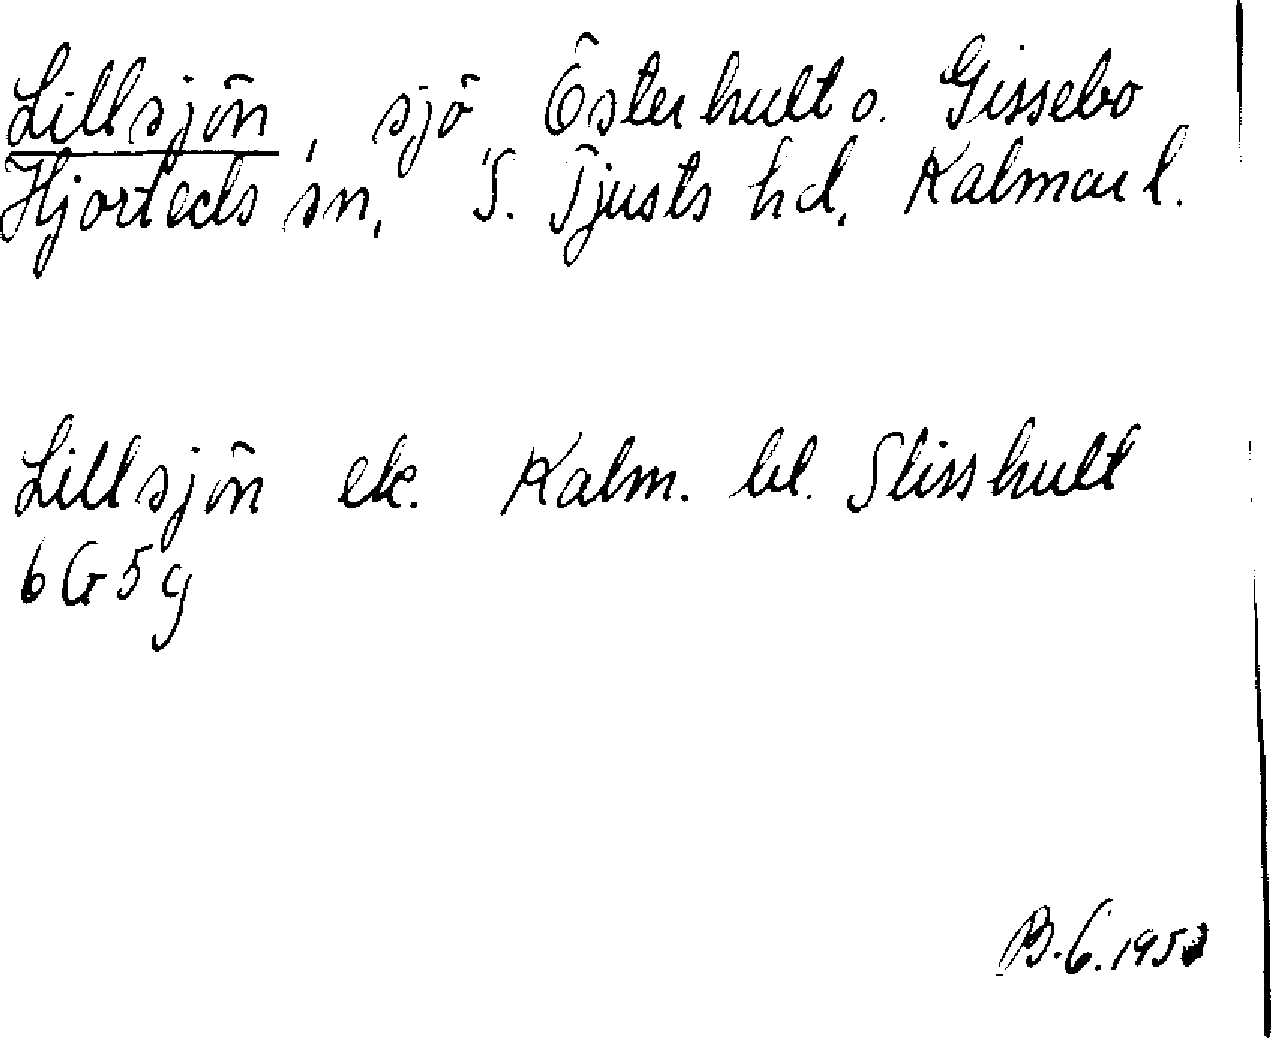 Lillsjön, sjö Österhult o. Gissebo
Hjorteds sn, S. Tjusts hd, Kalmar l.
Lillsjön ek. Kalm. bl. Slisshult
6G5g